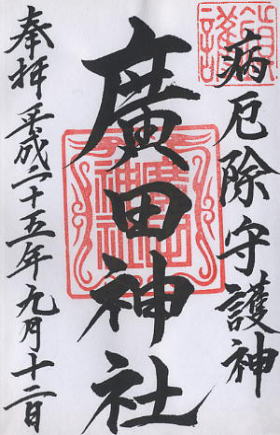 病厄除守護神
廣田神社
奉拝 平成二十五年九月十二日